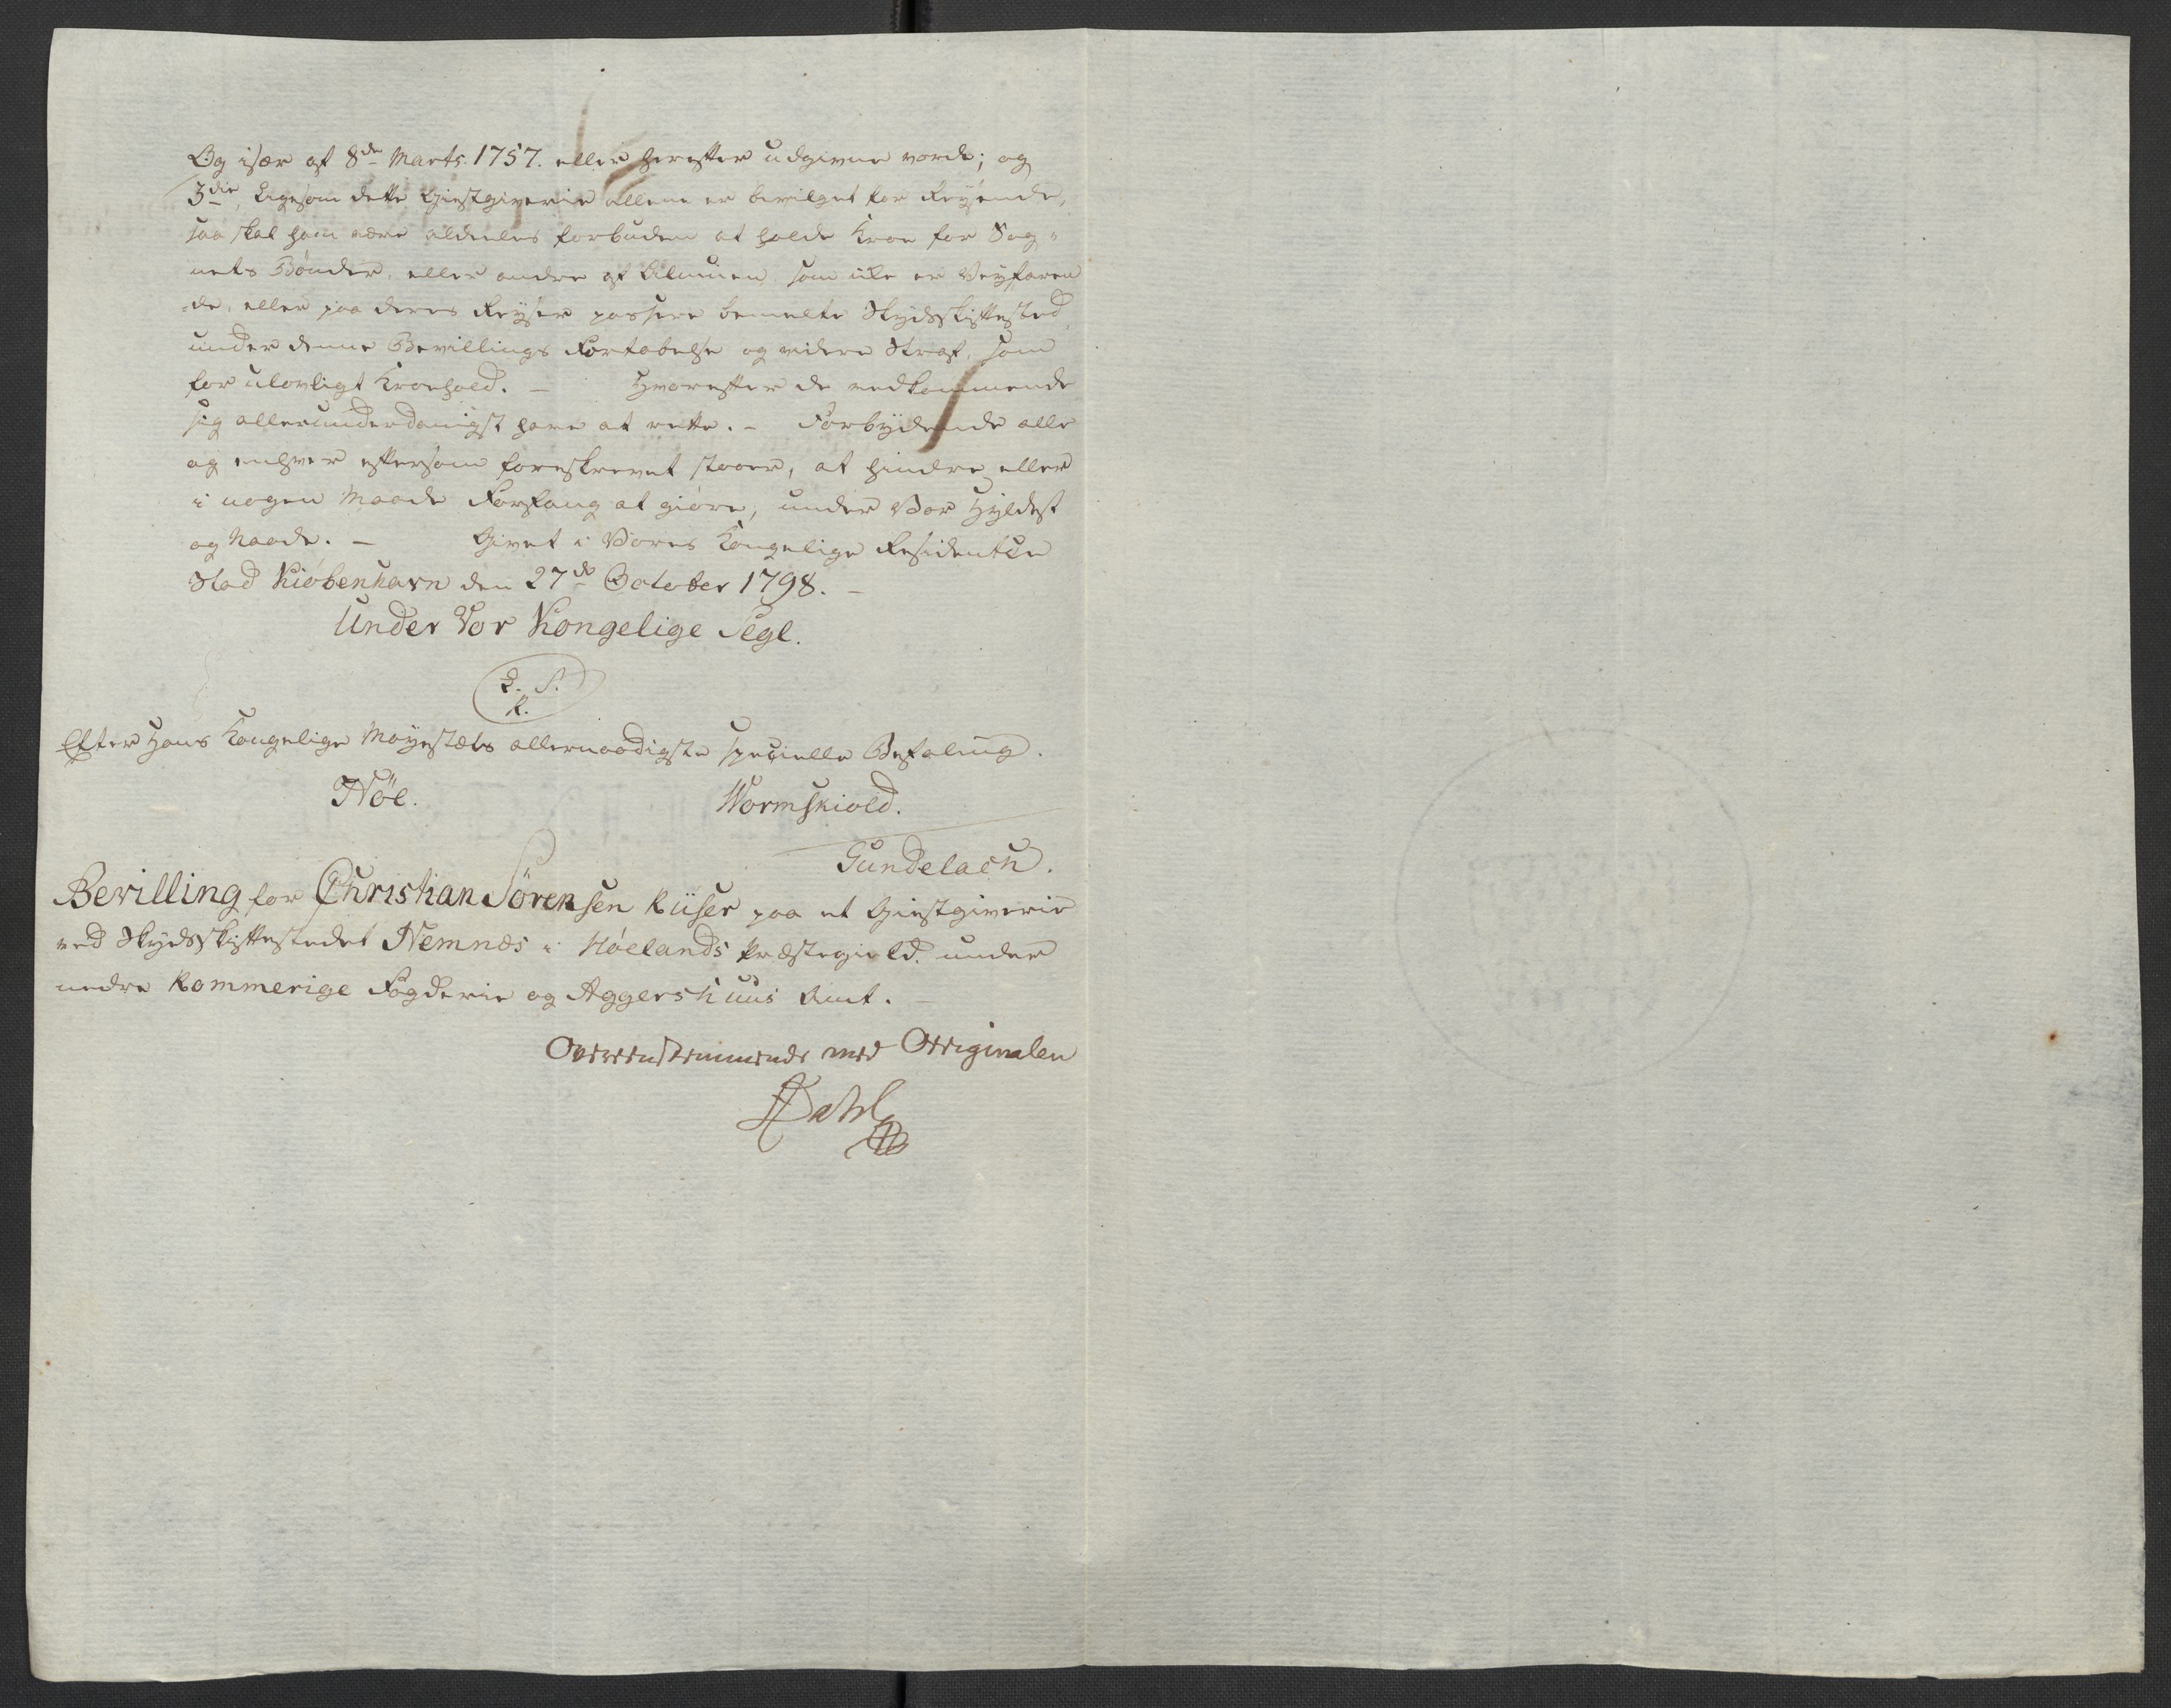 Og især af 8de Marts. 1757. eller herefter udgivne vorde; og
3die, Ligesom dette Giestgiverie allene er bevilget for Reysende,
saa skal ham være aldeeles forbuden at holde Kroe for Sog-
nets Bønder, eller andre af Almuen, som ikke er Veyfaren
-de, eller paa deres Reyser passere bemelte Skydsskiftested,
under denne Bevillings Fortabelse og videre Straf, som
for ulovligt Kroehold. – Hvorefter de vedkommende
sig allerunderdanigst have at rette. – Forbydende alle
og enhver eftersom foreskrevet staaer, at hindre eller
i nogen Maade Forfang at giøre, under Vor Hyldest
og Naade. – Givet i Vores Kongelige Residentze
Stad Kiöbenhavn den 27de October 1798. –
Under Vor Kongelige Segl.
L. S.
R.
Efter Hans Kongelige Mayestæts allernaadigste specielle Befaling.
Nöe. Wormskiold.
Gundelach.
Bevilling for Christian Sörensen Riiser paa et Giestgiverie
ved Skydsskiftestedet Nemnæs i Höelands Præstegield under
nedre Rommerige Fogderie og Aggershuus Amt. –
Overeenstemmende med Originalen
Dahl